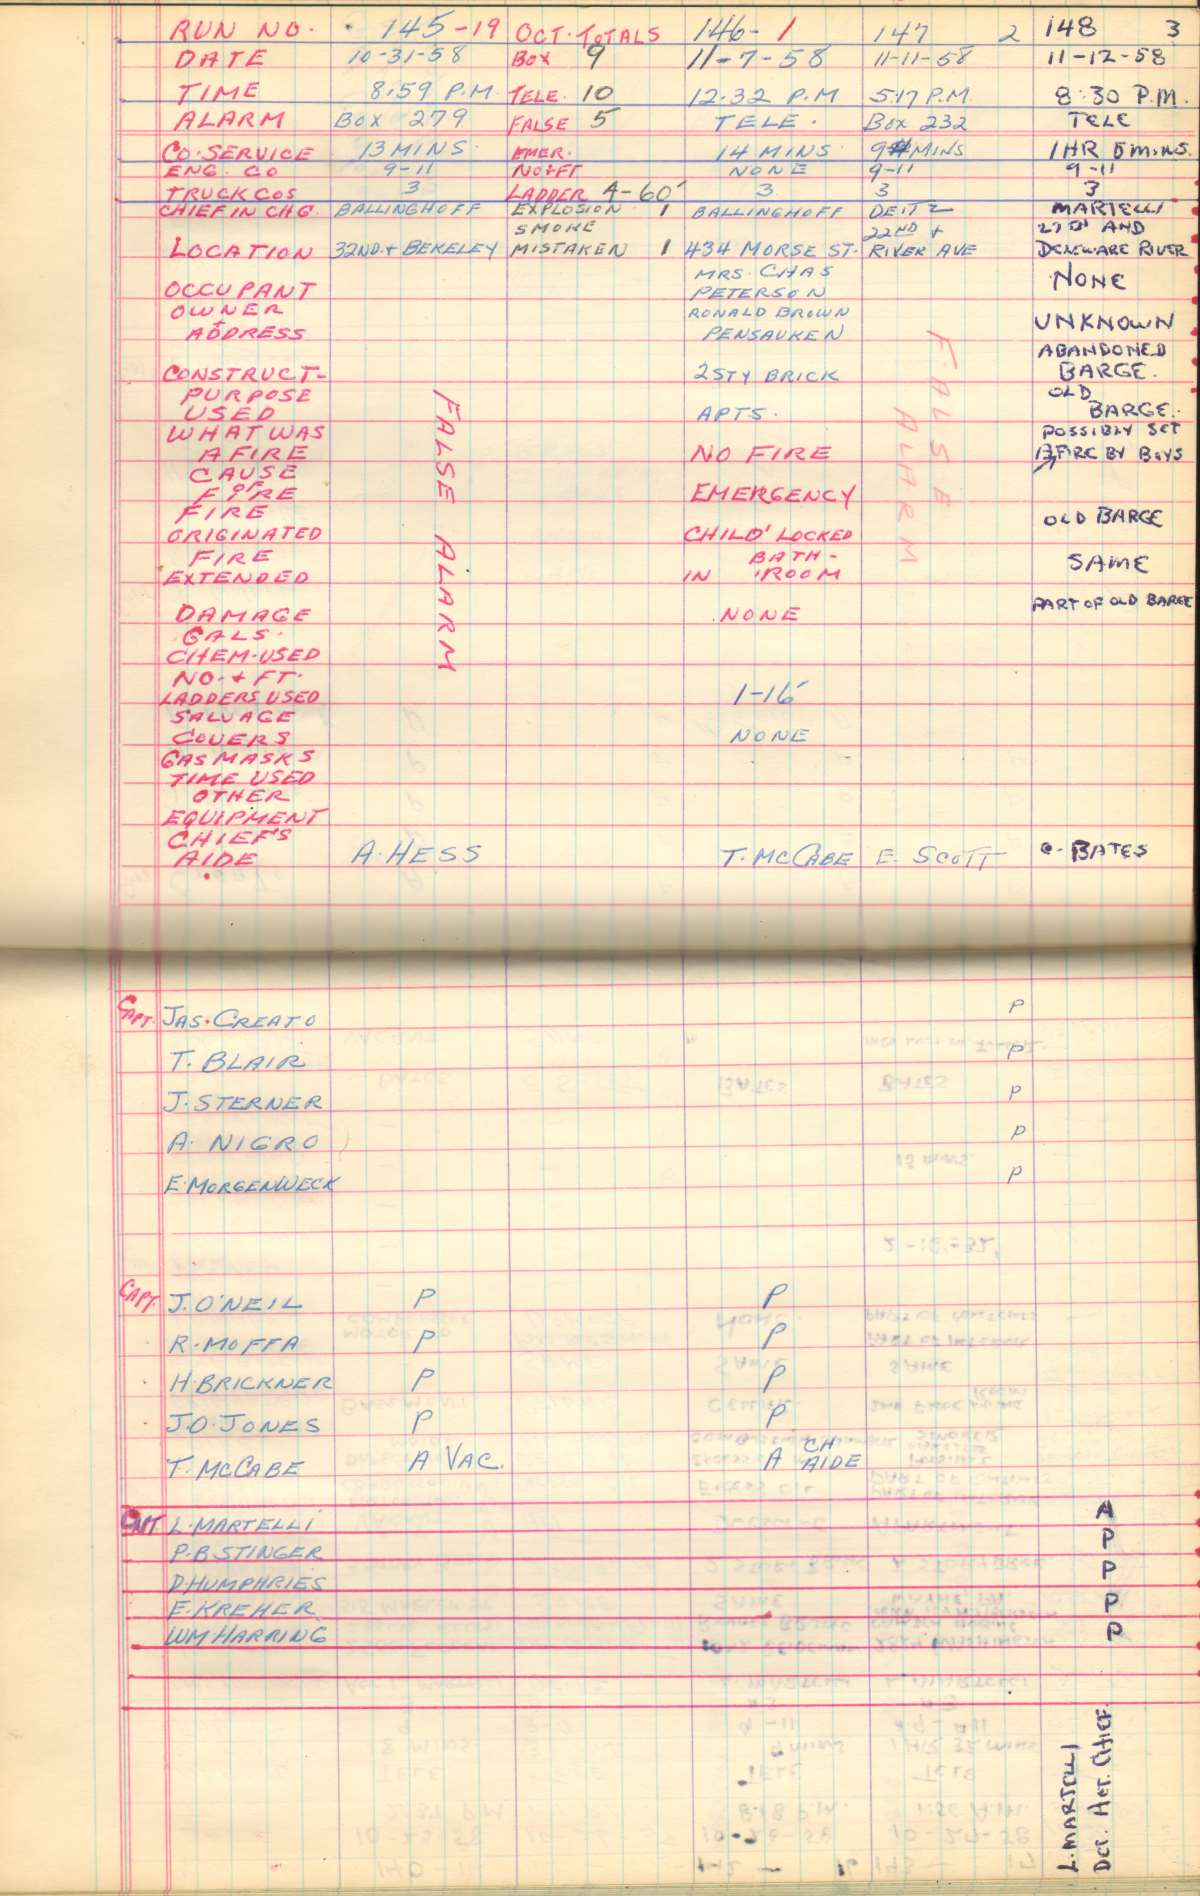 RUN NO. 145-19 OCT. TOTALS 146- 1 147 2 148 3
DATE 10-31-58 BOX 9 11-7-58 11-11-58 11-12-58
TIME 8:59 P.M. TELE. 10 12:32 P.M 5:17 P.M. 8:30 P.M.
ALARM BOX 279 FALSE 5 TELE. BOX 232 TELE
CO. SERVICE 13 MINS. EMER. 14 MINS. 9 MINS 1 HR 5 MINS.
ENG. CO 9-11 NO+FT NONE 9-11 9-11
TRUCK COS 3 LADDER 4-60' 3 3 3
CHIEF IN CHG. BALLINGHOFF EXPLOSION 1 BALLINGHOFF DEITZ MARTELLI
SMOKE 22ND + 27TH AND
LOCATION 32ND.+ BEKELEY MISTAKEN 1 434 MORSE ST. RIVER AVE DELEWARE RIVER
MRS. CHAS
OCCUPANT PETERSON NONE
OWNER RONALD BROWN
+ ADDRESS PENSAUKEN UNKNOWN
ABANDONED
CONSTRUCT- 2 STY BRICK BARGE.
PURPOSE OLD
USED APTS. BARGE.
WHAT WAS POSSIBLY SET
A FIRE NO FIRE FIRE BY BOYS
CAUSE
OF
FIRE EMERGENCY
FIRE OLD BARGE
ORIGINATED CHILD' LOCKED
FIRE BATH- SAME
EXTENDED IN ROOM
PART OF OLD BARGE
DAMAGE NONE
GALS.
CHEM. USED
NO. + FT.
LADDERS USED 1-16'
SALVAGE
COVERS NONE
GAS MASKS
TIME USED
OTHER
EQUIPMENT
CHIEF'S
AIDE A. HESS T. McCABE E. SCOTT C. BATES
FALSE ALARM
FALSE
ALARM
CAPT. JAS. CREATO P
T. BLAIR P
J. STERNER P
A. NIGRO P
E. MORGENWECK P
CAPT. J. O'NEIL P P
R. MOFFA P P
H. BRICKNER P P
J.O. JONES P P
T. McCABE A VAC. A CH AIDE
CAPT L. MARTELLI A
P. BSTINGER P
D. HUMPHRIES P
E. KREHER P
WM HARRING P
L. MARTELLI
DCT. ACT. CHIEF.